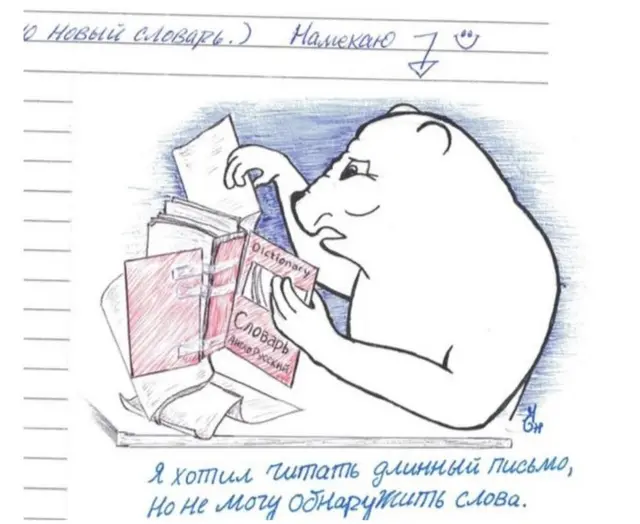 ю новый словарь.) Намекаю
Dictionary
Словарь
Англо Русский
Я хотил читать длинный письмо,
Но не могу обнаружить слова.